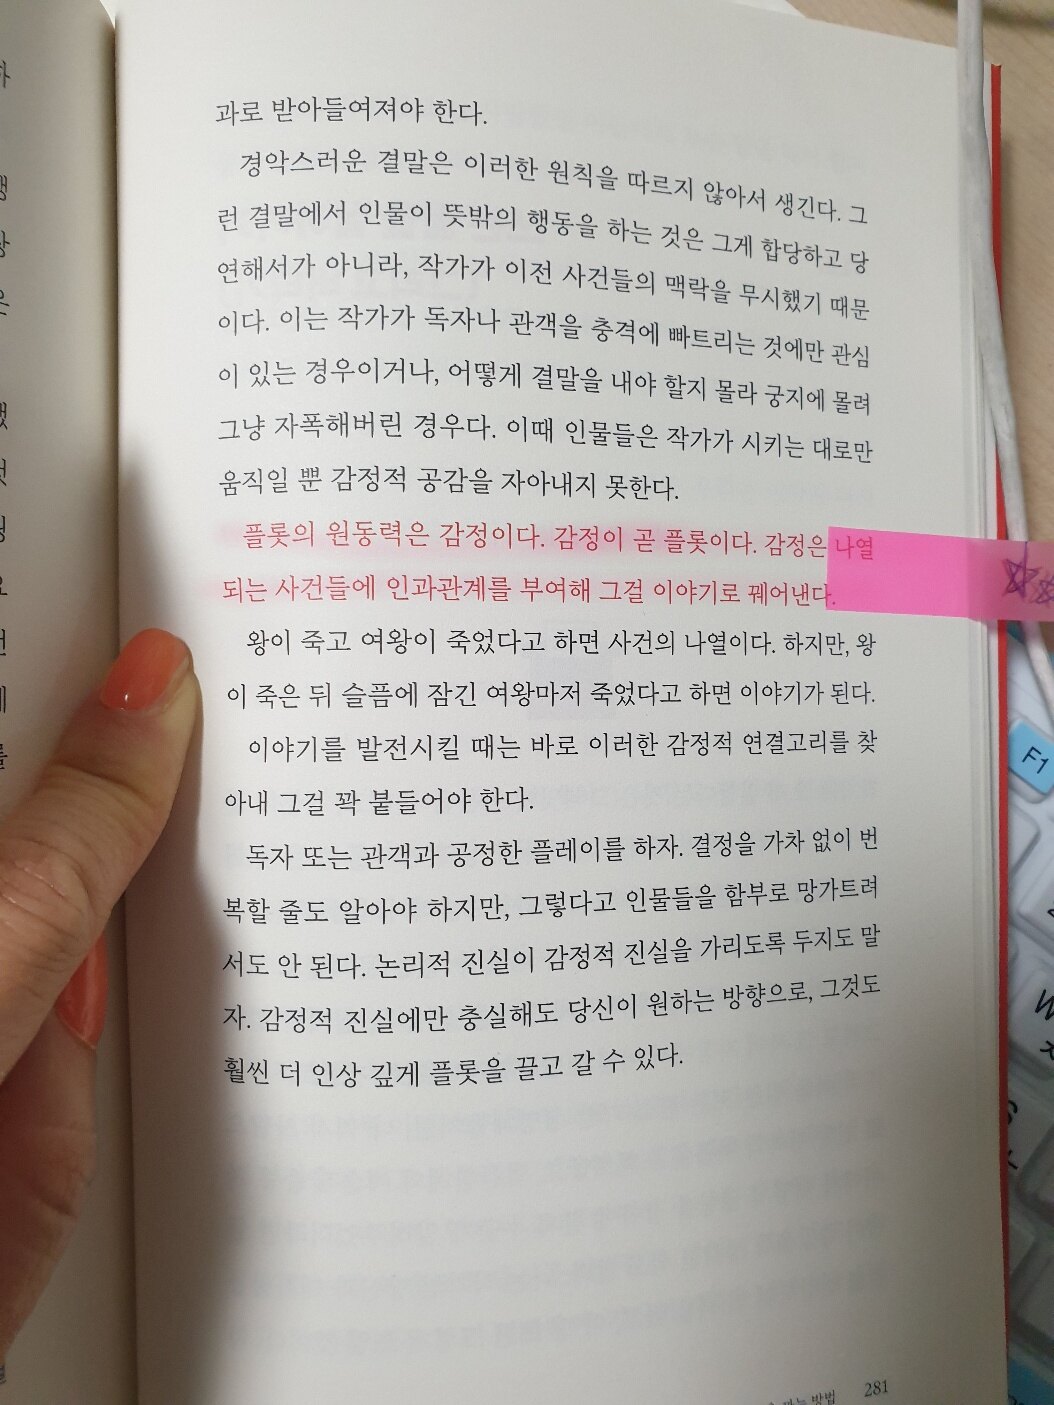 과로 받아들여져야 한다.
경악스러운 결말은 이러한 원칙을 따르지 않아서 생긴다. 그
런 결말에서 인물이 뜻밖의 행동을 하는 것은 그게 합당하고 당
연해서가 아니라, 작가가 이전 사건들의 맥락을 무시했기 때문
이다. 이는 작가가 독자나 관객을 충격에 빠트리는 것에만 관심
이 있는 경우이거나, 어떻게 결말을 내야 할지 몰라 궁지에 몰려
그냥 자폭해버린 경우다. 이때 인물들은 작가가 시키는 대로만
움직일 뿐 감정적 공감을 자아내지 못한다.
플롯의 원동력은 감정이다. 감정이 곧 플롯이다. 감정은 나열
되는 사건들에 인과관계를 부여해 그걸 이야기로 꿰어낸다.
왕이 죽고 여왕이 죽었다고 하면 사건의 나열이다. 하지만, 왕
이 죽은 뒤 슬픔에 잠긴 여왕마저 죽었다고 하면 이야기가 된다.
이야기를 발전시킬 때는 바로 이러한 감정적 연결고리를 찾
아내 그걸 꽉 붙들어야 한다.
독자 또는 관객과 공정한 플레이를 하자. 결정을 가차 없이 번
복할 줄도 알아야 하지만, 그렇다고 인물들을 함부로 망가트려
서도 안 된다. 논리적 진실이 감정적 진실을 가리도록 두지도 말
자. 감정적 진실에만 충실해도 당신이 원하는 방향으로, 그것도
훨씬 더 인상 깊게 플롯을 끌고 갈 수 있다.
방법 281
F1
W
S